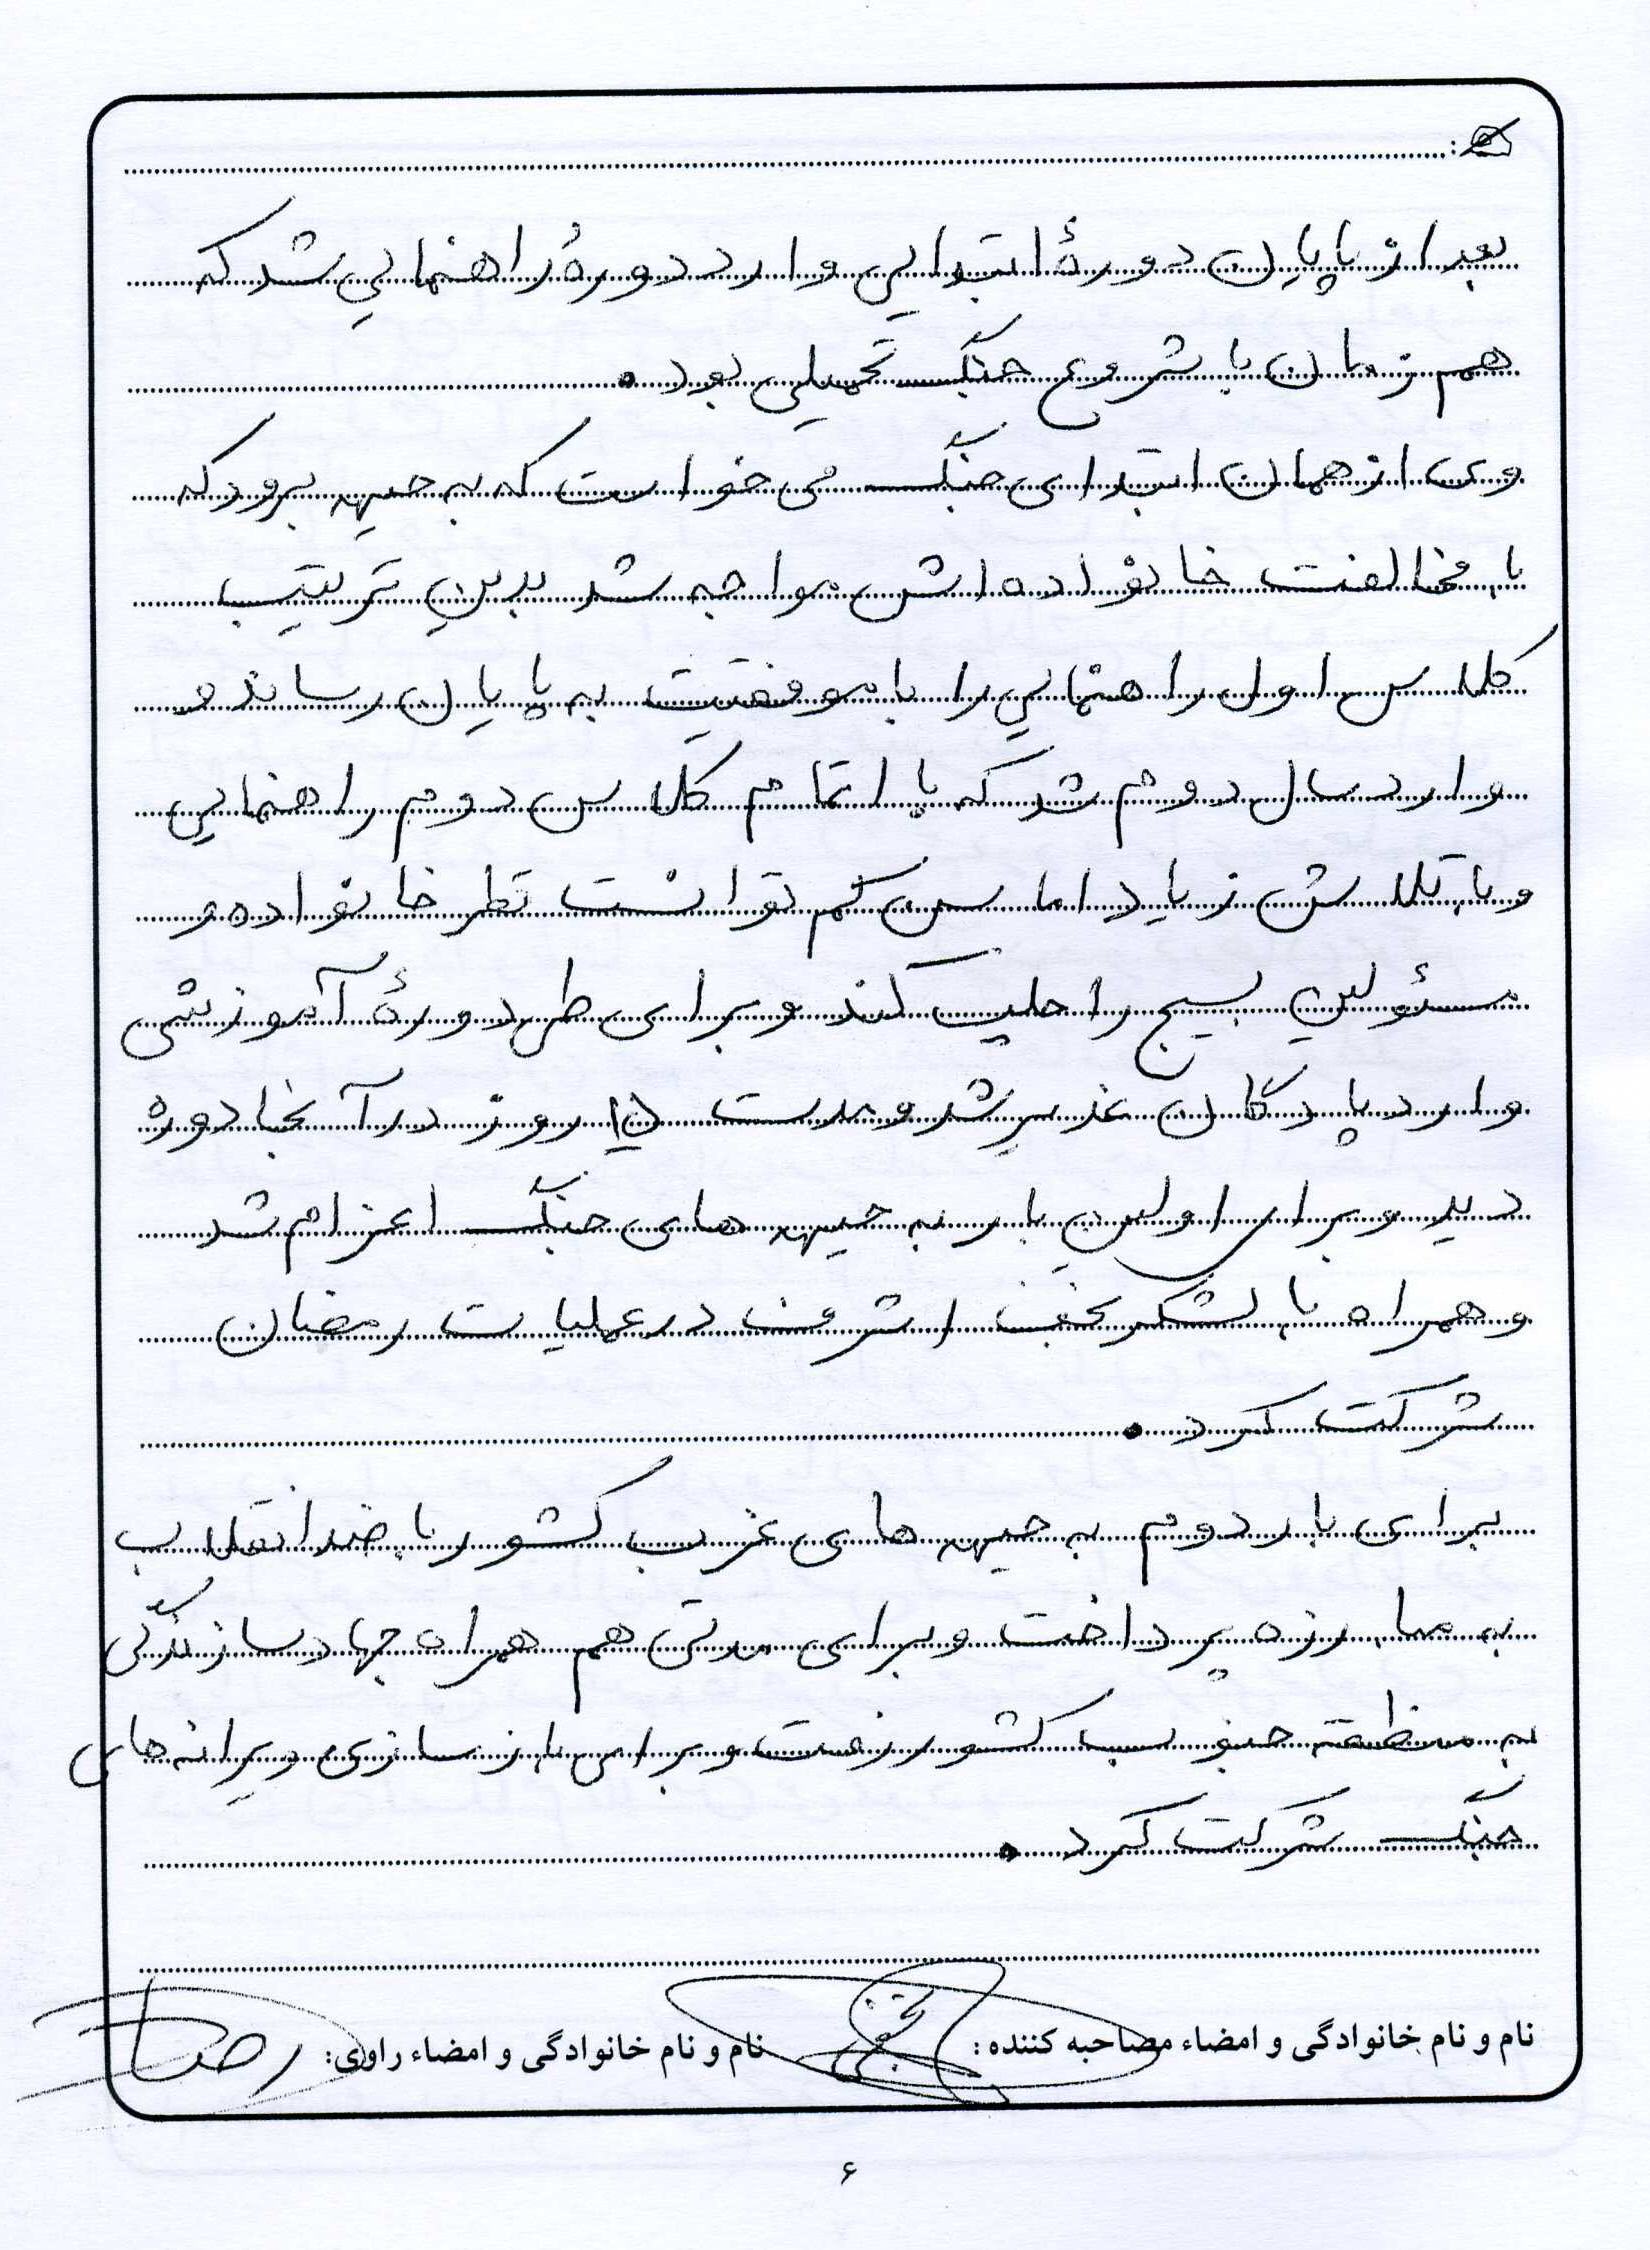 بعد از پایان دورهٔ ابتدایی وارد دورهٔ راهنمایی شد که
هم زمان با شروع جنگ تحمیلی بود.
وی از همان ابتدای جنگ می خواست که به جبهه برود که
با مخالفت خانواده اش مواجه شد بدین ترتیب
کلاس اول راهنمایی را با موفقیت به پایان رساند و
وارد سال دوم شد که با اتمام کلاس دوم راهنمایی
و با تلاش زیاد اما سن کم توانست نظر خانواده و
مسئولین بسیج را جلب کند و برای طی دورهٔ آموزشی
وارد پادگان غدیر شد و مدت ۱۵ روز در آنجا دوره
دید و برای اولین بار به جبهه های جنگ اعزام شد
و همراه با لشکر نجف اشرف در عملیات رمضان
شرکت کرد.
برای بار دوم به جبهه های غرب کشور با ضد انقلاب
به مبارزه پرداخت و برای مدتی هم همراه جهاد سازندگی
به منطقه جنوب کشور رفت و برای بازسازی ویرانه های
جنگ شرکت کرد.
نام و نام خانوادگی و امضاء مصاحبه کننده: نام و نام خانوادگی و امضاء راوی:
۶